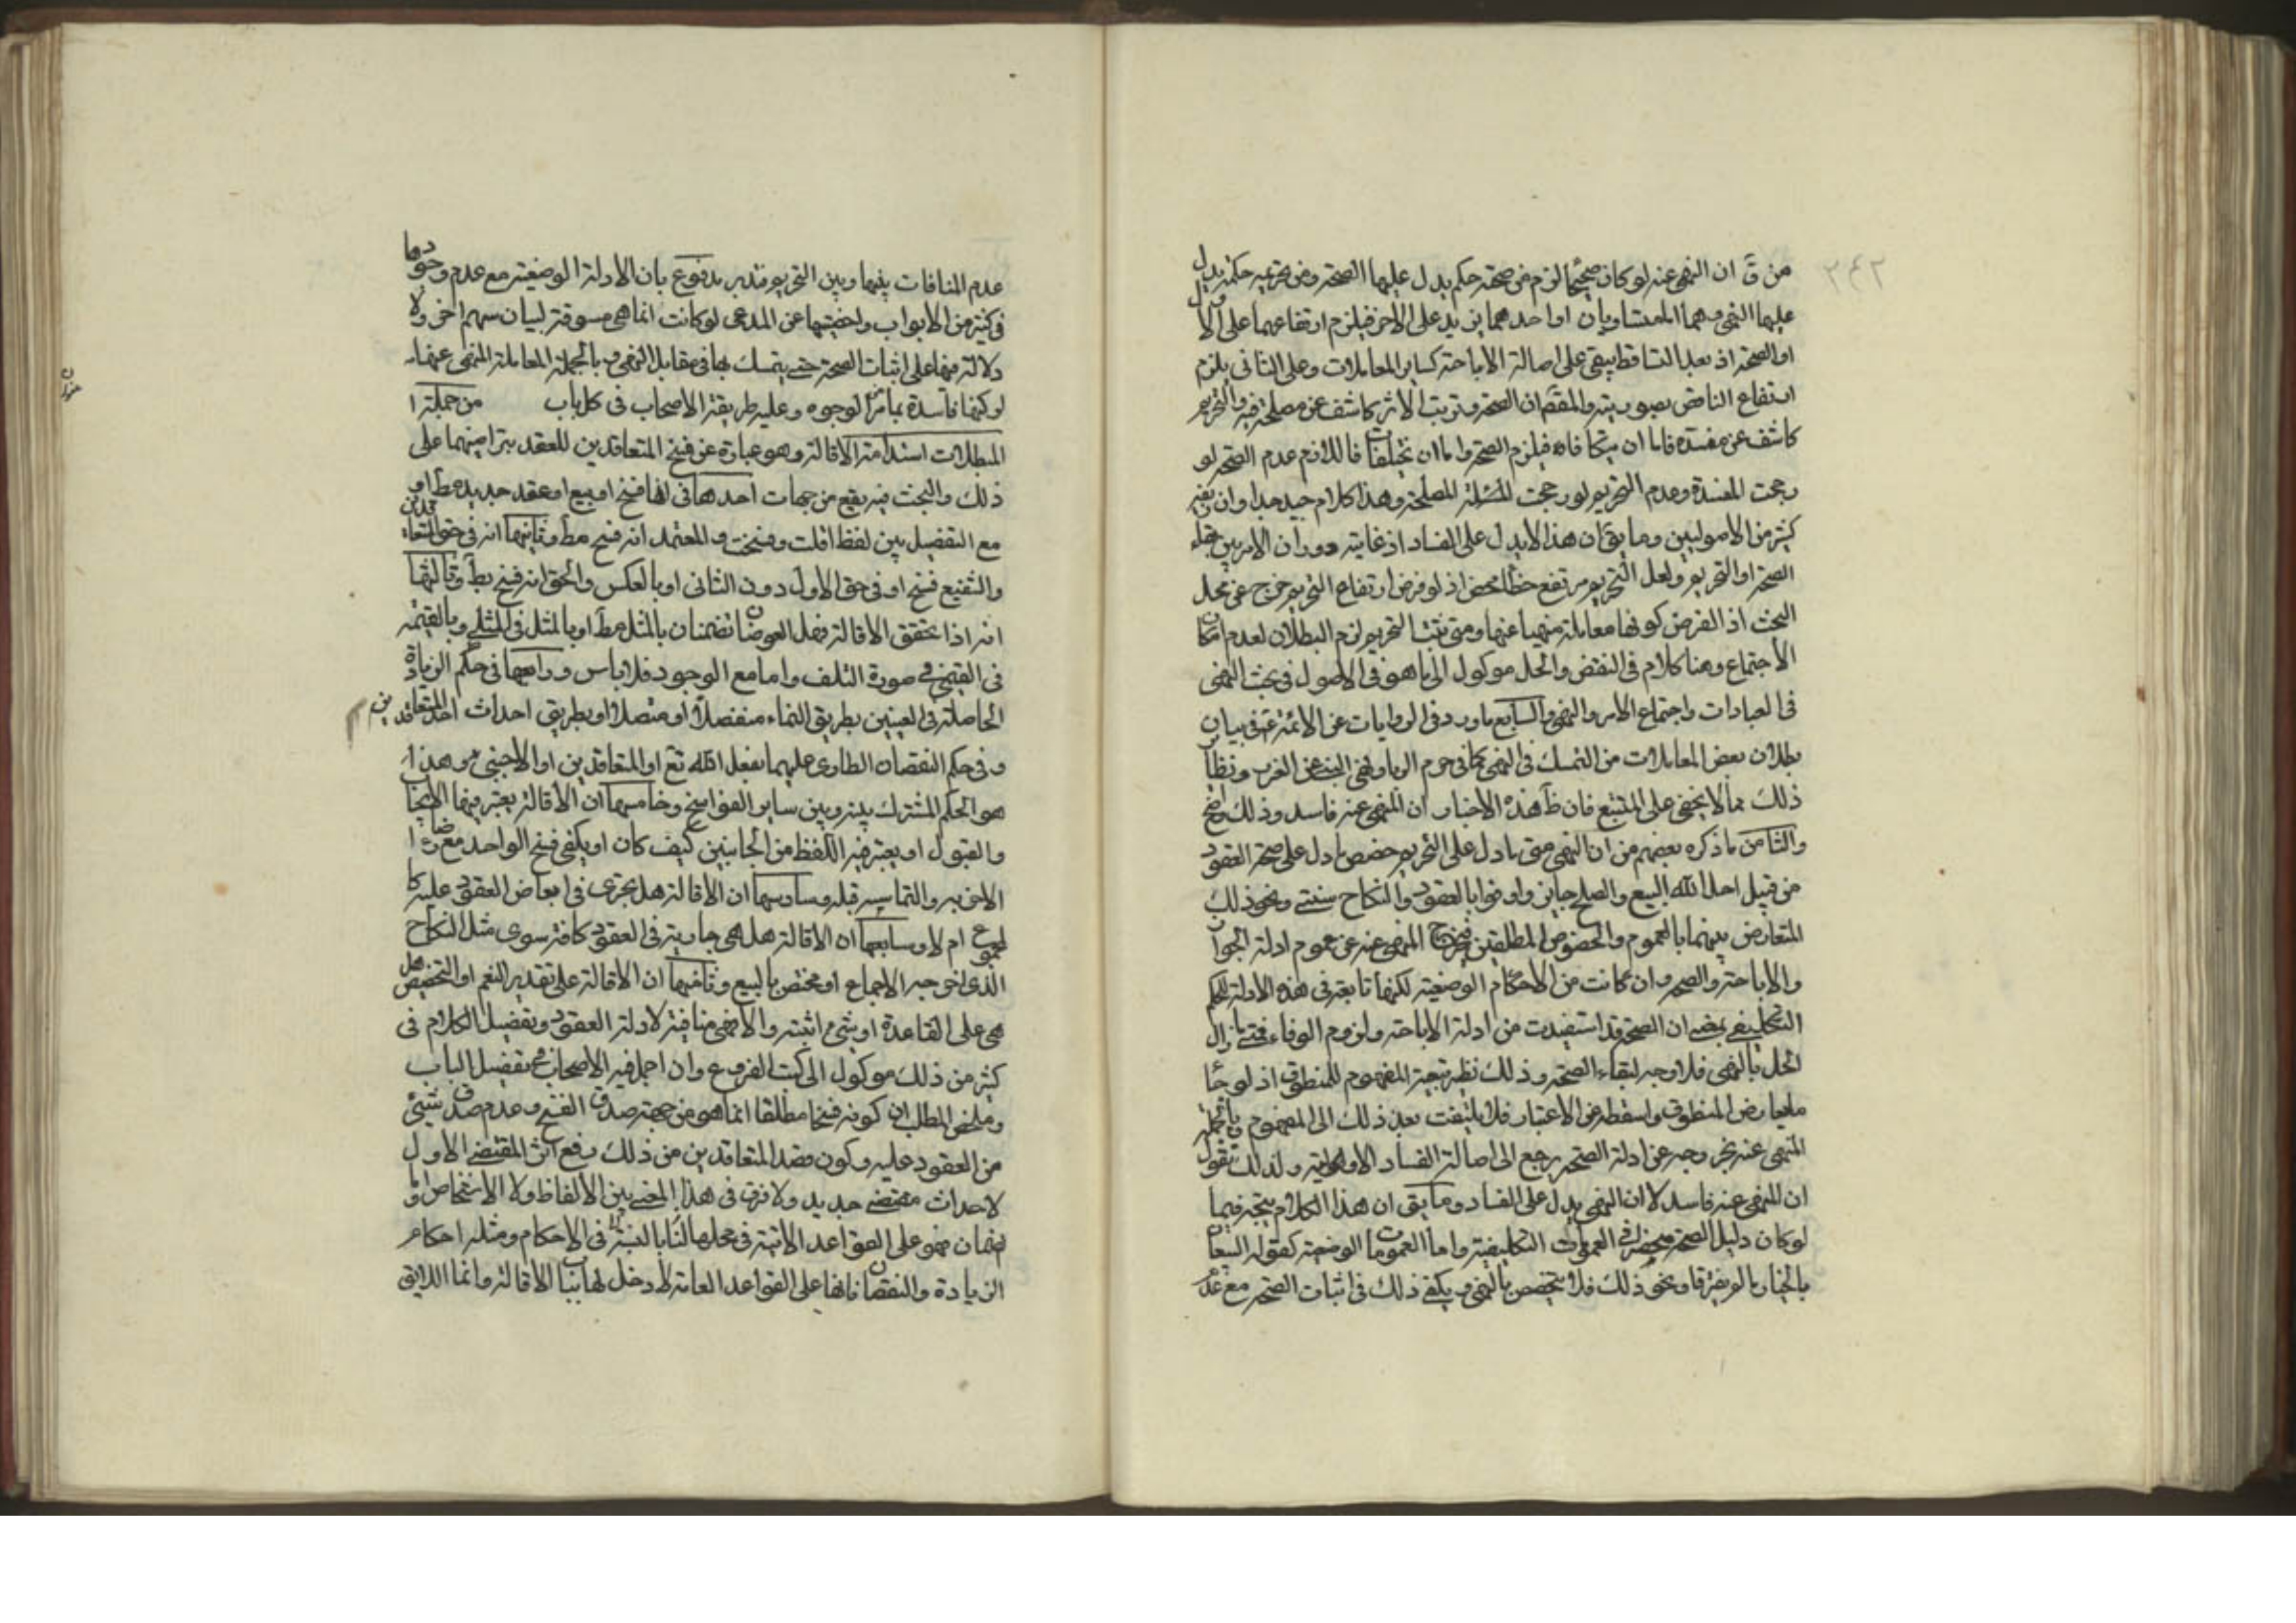 ٢٤٢
من قَ ان النهى عنه لو كان صحيحًا لزم من صحته حكم يدل عليها الصحة ومن تحريمه حكمة يدل
عليها النهى وهما المتساويان او احدهما يزيد على الاخر فيلزم ارتفاعهما على الاول
او الصحة اذ بعد التساقط يبقى على اصالة الاباحة كساير المعاملات وعلى الثانى يلزم
ارتفاع الناقص بصورته والمقَّم ان الصحة وترتب الاثر كاشف عن مصلحة فيه والتحريم
كاشف عن مفسدة فاما ان يتكافاه فيلزم الصحة واما ان تختلفا فاللازم عدم الصحة لو
رجحت المفسدة وعدم التحريم لو رجحت المصلحة وهذا كلام جيد جدا وان
كثير من الاصوليين وما يقَ ان هذا لا يدل على الفساد اذ غايته دوران الامر بين بقاء
الصحة او التحريم ولعل التحريم مرتفع خطأ محض اذ لو فرض ارتفاع التحريم خرج عن محل
البحث اذ الفرض كونها معاملة منهيا عنها ومتى ثبت التحريم لزم البطلان لعدم امكان
الاجتماع وهنا كلام فى النقض والحل موكول الى ما هو فى الاصول فى بحث النهى
فى العبادات واجتماع الامر والنهى والسابع ما ورد فى الروايات عن الائمة عَم فى بيان
بطلان بعض المعاملات من التمسك فى النهى كما فى حرم الربا ونهى النبى عن الغرر ونظاير
ذلك مما لا يخفى على المتتبع فان ظَ هذه الاخبار ان المنهى عنه فاسد وذلك واضح
والثامن ما ذكره بعضهم من ان النهى متى ما دل على التحريم خصص ما دل على صحة العقود
من قبيل احل الله البيع والصلح جايز واوفوا بالعقود والنكاح سنتى ونحو ذلك
المتعارض بينهما بالعموم والخصوص المطلقين فيخرج المنهى عنه عن عموم ادلة الجواز
والاباحة والصحة وان كانت من الاحكام الوضعية لكنها تابعة فى هذه الادلة للحكم
التكليفى بمعنى ان الصحة قد استفيدت من ادلة الاباحة ولزوم الوفاء فمتى زال
الحل بالنهى فلا وجه لبقاء الصحة وذلك نظير تبعية المفهوم للمنطوق اذ لو جاء
ما يعارض المنطوق واسقطه عن الاعتبار فلا يلتفت بعد ذلك الى المفهوم وبالجملة
المنهى عنه بخروجه عن ادلة الصحة يرجع الى اصالة الفساد الاولوية ولذلك نقول
ان المنهى عنه فاسد لا ان النهى يدل على الفساد وما يقَ ان هذا الكلام يتجه فيما
لو كان دليل الصحة منحصرا فى العمومات التكليفية واما العمومات الوضعية كقوله البيعان
بالخيار ما لم يفترقا ونحو ذلك فلا تخصص بالنهى ويكفى ذلك فى اثبات الصحة مع عدم
عدم المنافات بينها وبين التحريم فتدبر مدفوع بان الادلة الوضعية مع عدم وجودها
فى كثير من الابواب واخصيتها عن المدعى لو كانت انما هى مسوقة لبيان سهم اخر ولا
دلالة فيها على اثبات الصحة حتى يتمسك بها فى مقابل النهى وبالجملة المعاملة المنهى عنها
لو كيها فاسدة بما مرَّ الوجوه وعليه طريقة الاصحاب فى كل باب من جملة ا
المبطلات استدامة الاقالة وهو عبارة عن فسخ المتعاقدين للعقد بتراضيهما على
ذلك والبحث فيه يقع من جهات احدها فى انها فسخ او بيع او عقد جديد مطَ او
مع التفصيل بين لفظ اقلت وفسخت والمعتمد انه فسخ مطَ وثانيها انه فى حق المتعاقدين
والشفيع فسخ او فى حق الاول دون الثانى او بالعكس والحق انه فسخ مطَ وثالثها
انه اذا تحقق الاقالة فهل العوضان تضمنان بالمثل مطَ او بالمثل فى المثلى وبالقيمة
فى القيمى فى صورة التلف واما مع الوجود فلا باس ورابعها فى حكم الزيادة
الحاصلة فى العينين بطريق النماء منفصلًا او متصلًا او بطريق احداث احد المتعاقدين
وفى حكم النقصان الطارى عليهما بفعل الله تعَ او المتعاقدين او الاجنبى وهذا
هو الحكم المشترك بينه وبين ساير الفواسخ وخامسها ان الاقالة يعتبر فيها الايجاب
والقبول او يعتبر فيه اللفظ من الجانبين كيف كان او يكفى فسخ الواحد مع رضا ا
الاخر به والتماسه قبله وسادسها ان الاقالة هل يجرى فى ابعاض العقود عليه كا
لمجموع ام لا وسابعها ان الاقالة هل هى جارية فى العقود كافة سوى مثل النكاح
الذى اخرجه الاجماع او مختص بالبيع وثامنها ان الاقالة على تقدير التعميم او التخصيص هل
هى على القاعدة او بشئ اثبته والا فهى منافية لادلة العقود وتفصيل الكلام فى
كثير من ذلك موكول الى كتب الفروع وان اجمل فيه الاصحاب تفصيل الباب
وملخص المطلب ان كونه فسخا مطلقا انما هو من جهة صدق الفسخ وعدم صدق شئ
من العقود عليه وكون قصد المتعاقدين من ذلك رفع اثر المقتضى الاول
لاحداث مقتضى جديد ولا فرق فى هذا المعنى بين الالفاظ ولا الاشخاص واما
لضمان فهو على القواعد الاتية فى محلها لنا بالنسبة فى الاحكام ومثله احكام
الزيادة والنقصان فانها على القواعد العامة لا دخل لها بباب الاقالة وانما اللايق